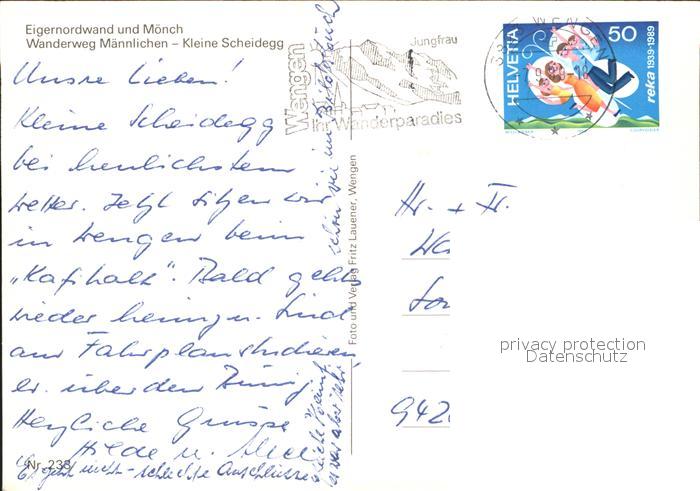 Eigernordwand und Mönch
Wanderweg Männlichen – Kleine Scheidegg
Unsre Lieben!
Kleine Scheidegg
bei herrlichstem
Wetter. Jetzt sitzen wir
in Wengen beim
„Kafihalt“. Bald geht's
wieder heimzu. Sind
am Fahrplanstudieren,
ev. über den Brünig.
Herzliche Grüsse
Hilde u.
Es geht nicht - schlechte Anschlüsse
Nr. 233
Foto und Verlag Fritz Lauener, Wengen
Wengen
Jungfrau
Ihr Wanderparadies
WENGEN
HELVETIA
50
reka 1939-1989
COURVOISIER
Hr. + Fr.
942
privacy protection
Datenschutz